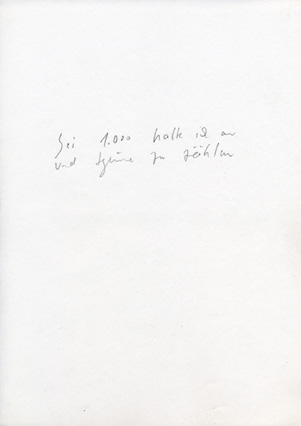 Bei 1.000 halte ich an
und zu zählen